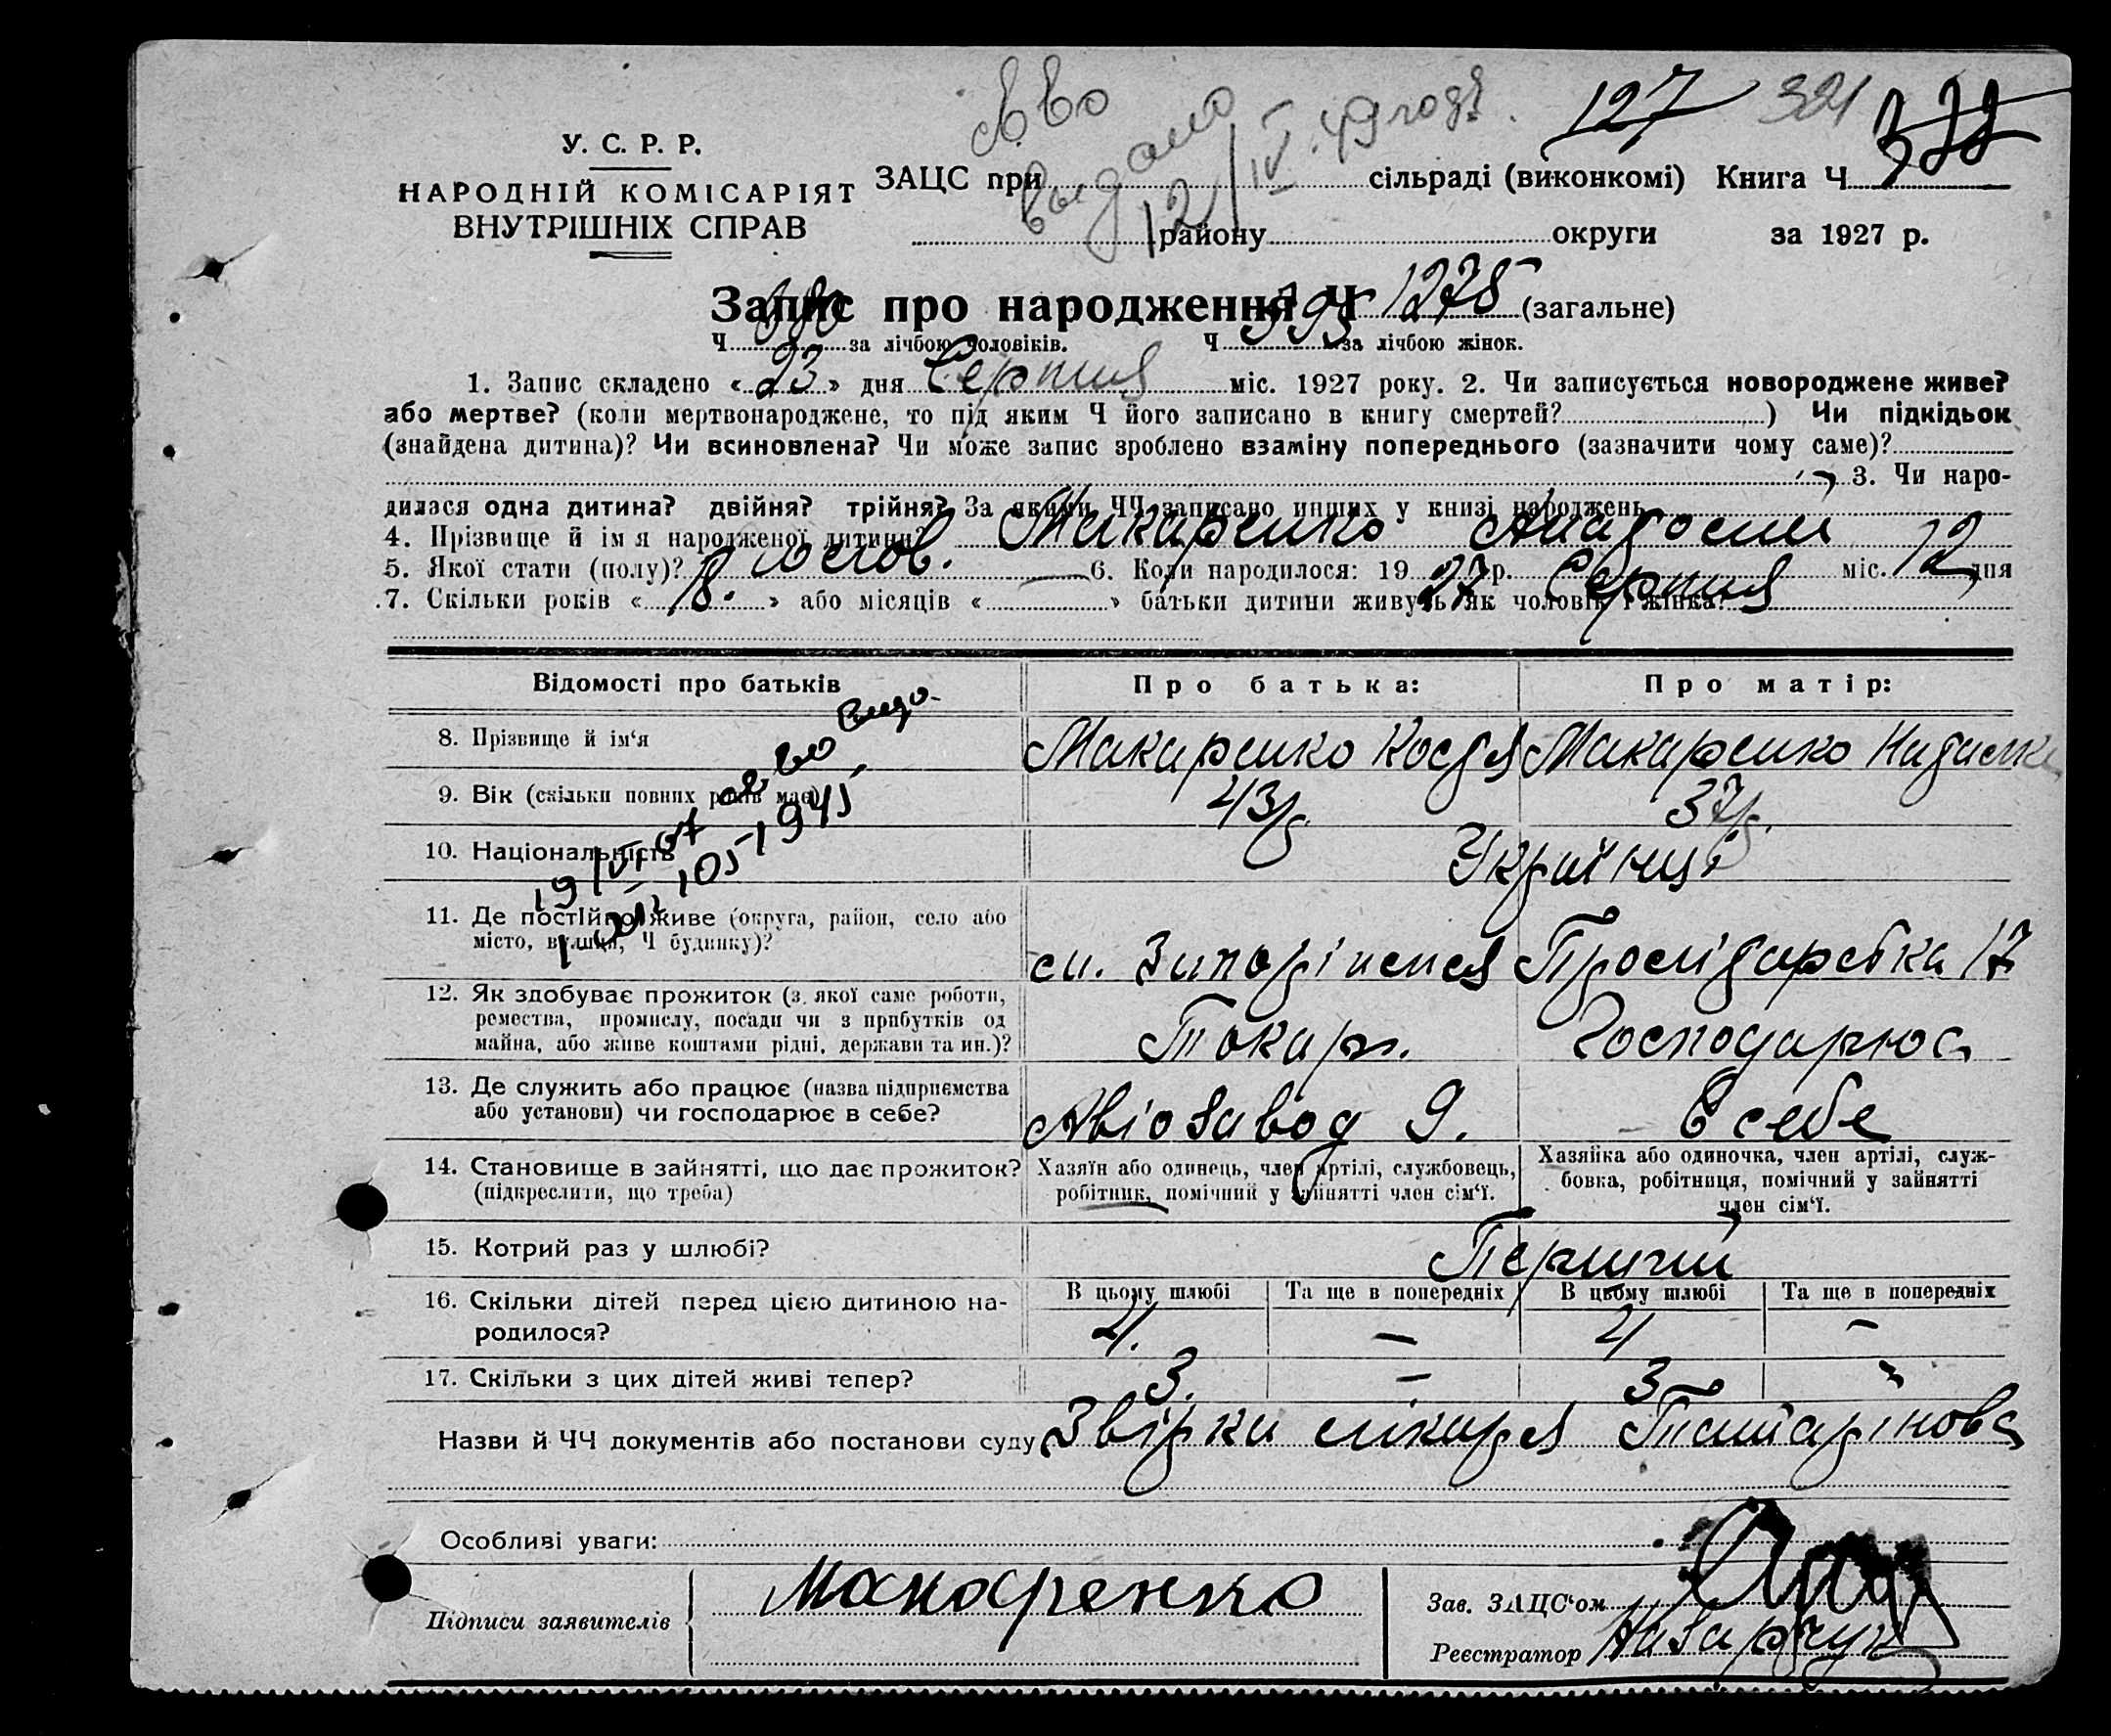 У. С. Р. Р.
НАРОДНІЙ КОМІСАРІЯТ
ВНУТРІШНІХ СПРАВ
Выдано
12/IV 49 году.
127 321
ЗАЦС при сільраді (виконкомі) Книга Ч
району округи за 1927 р.
Запис про народження Ч 1275 (загальне)
Ч 680 за лічбою чоловіків. Ч 595 за лічбою жінок.
1. Запис складено « 23 » дня Серпня міс. 1927 року. 2. Чи записується новороджене живе?
або мертве? (коли мертвонароджене, то під яким Ч його записано в книгу смертей? ) Чи підкідьок
(знайдена дитина)? Чи всиновлена? Чи може запис зроблено взаміну попереднього (зазначити чому саме)?
3. Чи наро-
дилася одна дитина? двійня? трійня? За якими ЧЧ записано инших у книзі народжень
4. Прізвище й ім'я народженої дитини? Макаренко Анатолий
5. Якої стати (полу)? чолов. 6. Коли народилося: 19 27 р. Серпня міс. 12 дня
7. Скільки років « 18. » або місяців « — » батьки дитини живуть як чоловік і жінка?
Відомості про батьків Про батька: Про матір:
8. Прізвище й ім'я Макаренко Костя Макаренко
9. Вік (скільки повних років має) 43 р. 37 р.
10. Національність Українці
11. Де постійно живе (округа, район, село або
місто, вулиця, Ч будинку)?
м. Запоріжжя 17
12. Як здобуває прожиток (з якої саме роботи,
ремества, промислу, посади чи з прибутків од
майна, або живе коштами рідні, держави та ин.)?
Токарь. Господарює
13. Де служить або працює (назва підприємства
або установи) чи господарює в себе?
Авіозавод 9. В себе
14. Становище в зайнятті, що дає прожиток?
(підкреслити, що треба)
Хазяїн або одинець, член артілі, службовець,
робітник, помічний у зайнятті член сім'ї.
Хазяйка або одиночка, член артілі, служ-
бовка, робітниця, помічний у зайнятті
член сім'ї.
15. Котрий раз у шлюбі? Перший
16. Скільки дітей перед цією дитиною на-
родилося?
В цьому шлюбі Та ще в попередніх В цьому шлюбі Та ще в попередніх
4. — 4 —
17. Скільки з цих дітей живі тепер? 3. — 3 "
Назви й ЧЧ документів або постанови суду Звірка лікаря
Особливі уваги:
Підписи заявителів Макаренко
Зав. ЗАЦС'ом
Реєстратор Назарчук